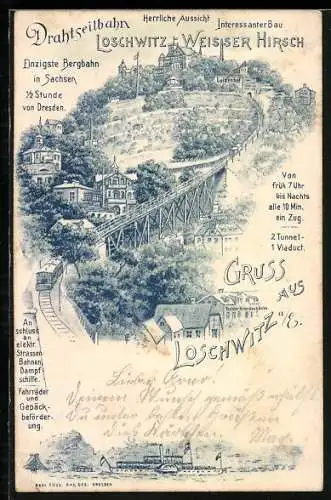 Drahtseilbahn
Herrliche Aussicht
Interessanter Bau
LOSCHWITZ-WEISSER HIRSCH
Einzigste Bergbahn
in Sachsen
½ Stunde
von Dresden.
Luisenhof
Von
früh 7 Uhr
bis Nachts
alle 10 Min.
ein Zug.
2 Tunnel-
1 Viaduct.
GRUSS
AUS
LOSCHWITZ a/E.
An
schluss
an
elektr.
Strassen-
Bahnen,
Dampf-
schiffe.
Fahrräder
und
Gepäck-
beförder-
ung.
Lieber
Deinem Wunsche gemäß erhältst
Du
dies Kärtchen.
DRESDEN